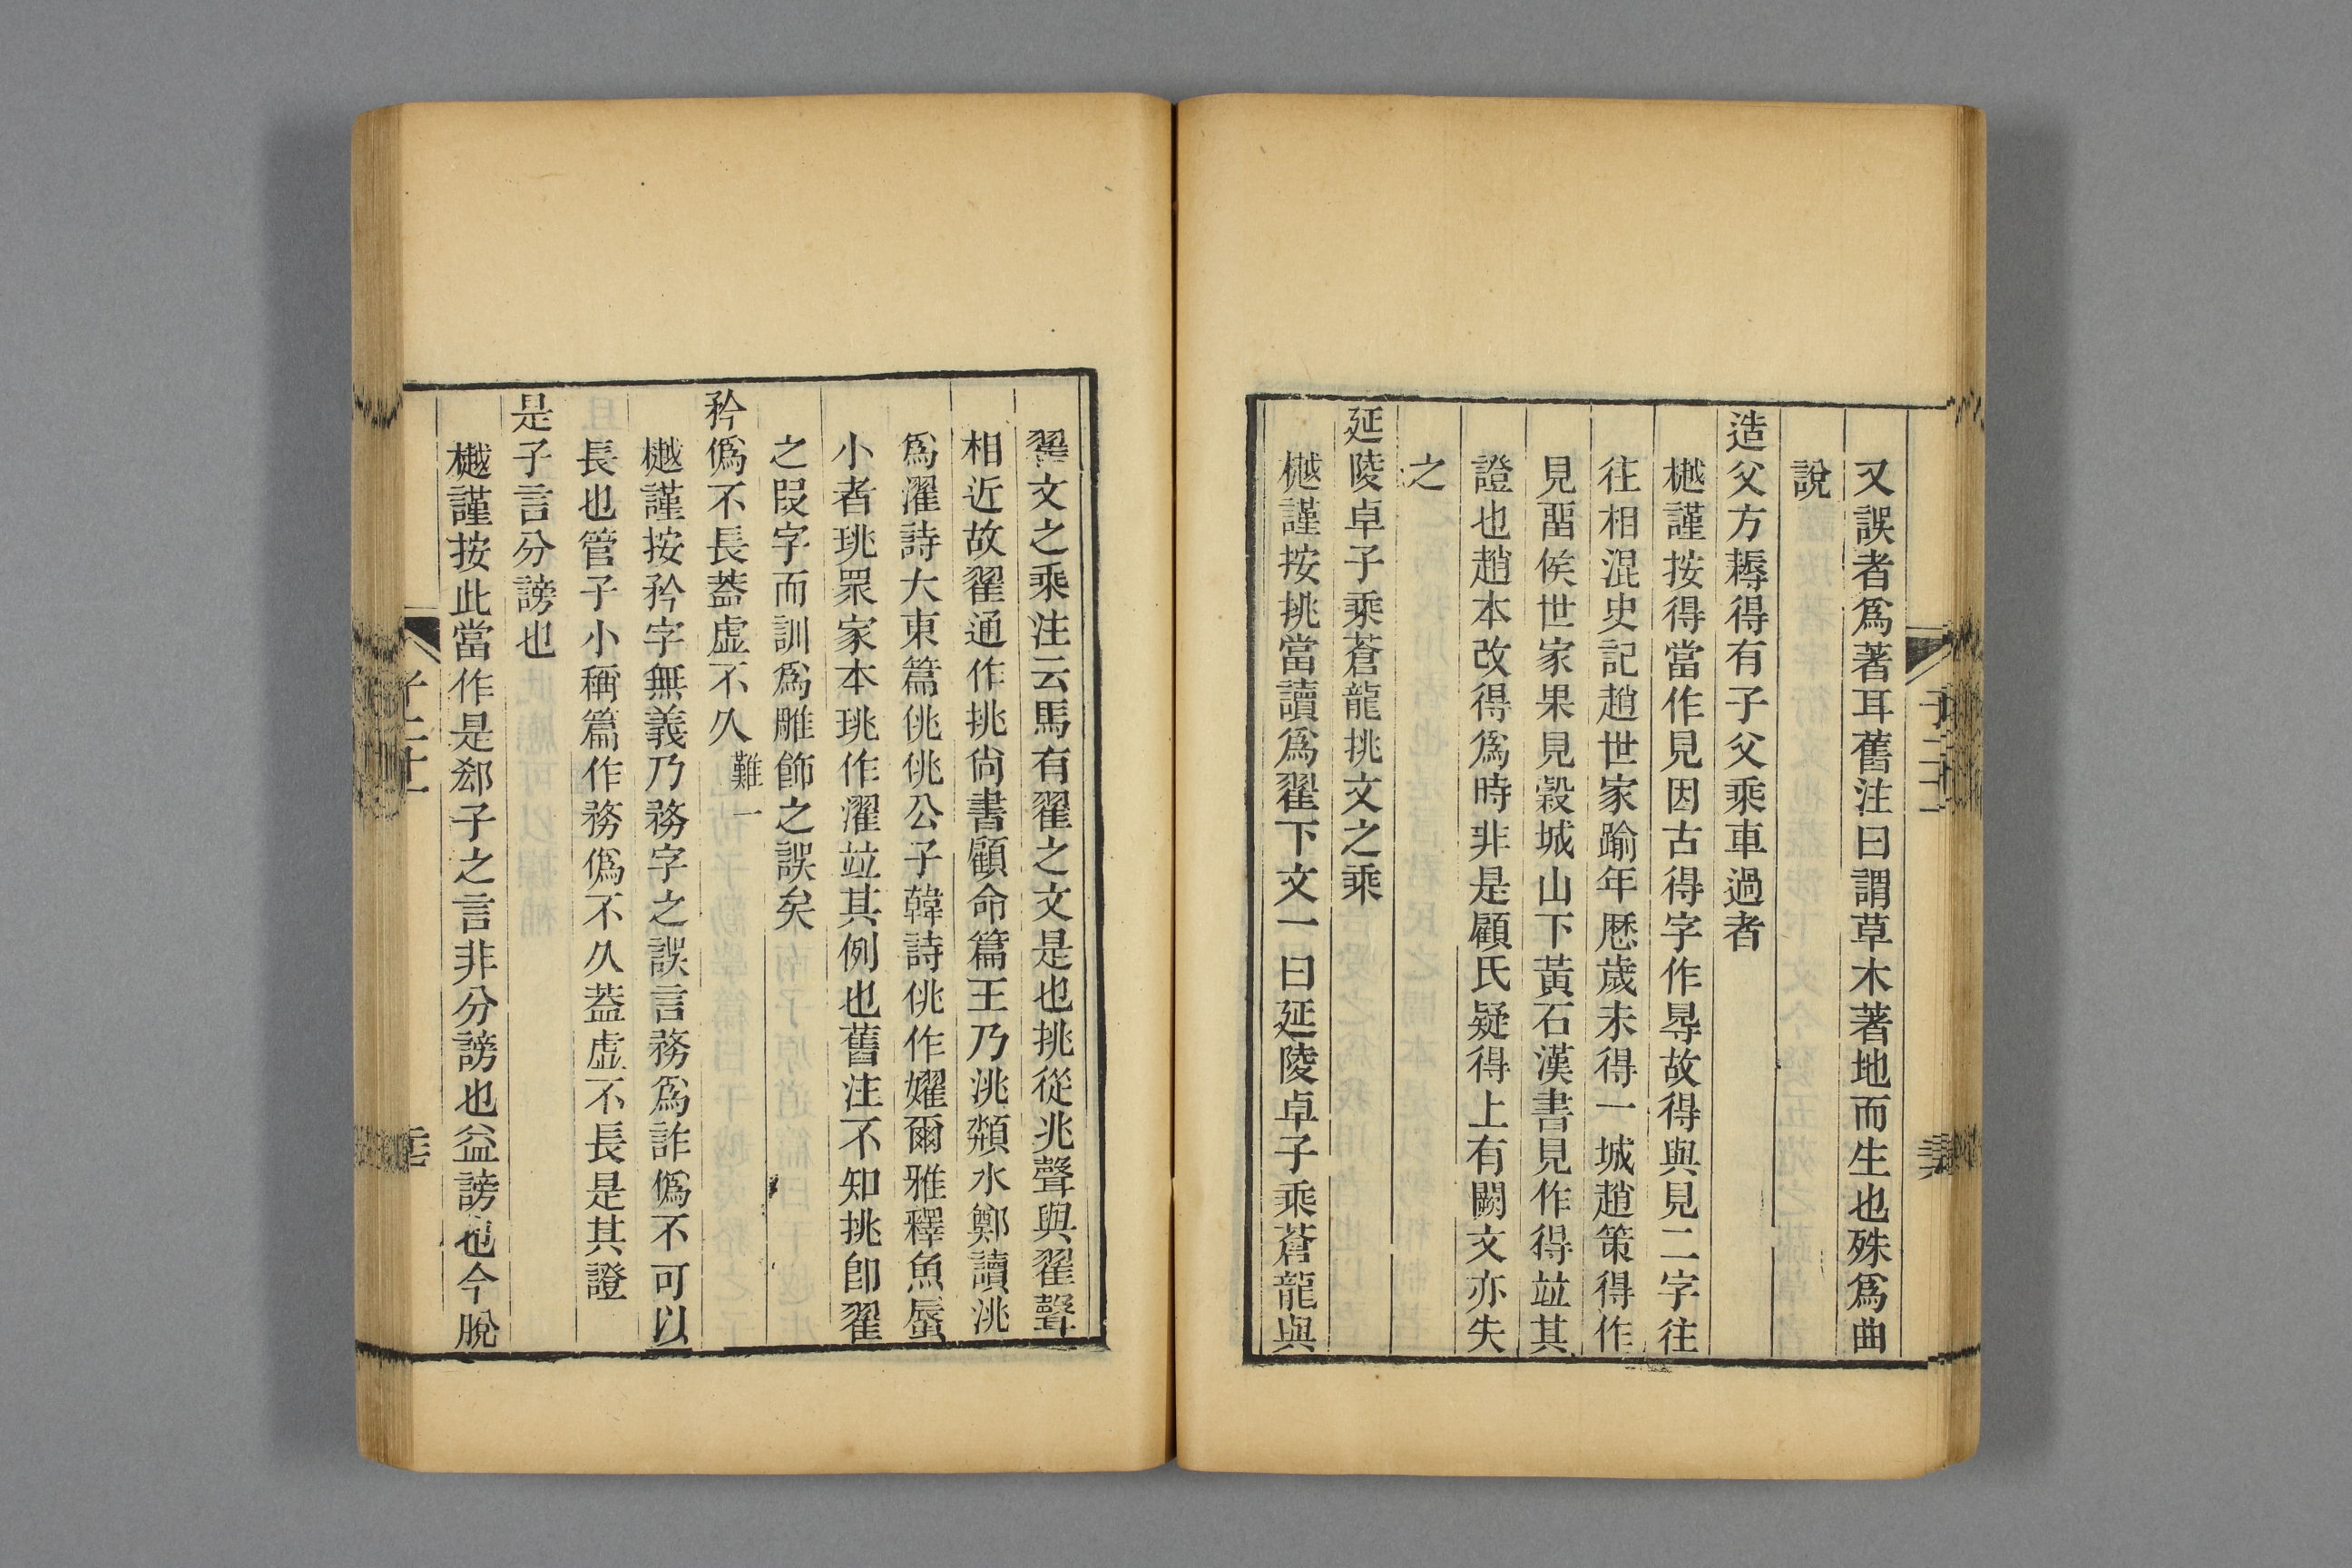 又誤者爲著耳舊注曰謂草木著地而生也殊爲曲
說
造父方耨得有子父乘車過者
樾謹按得當作見因古得字作㝵故得與見二字往
往相混史記趙世家踰年歷歲未得一城趙策得作
見留侯世家果見穀城山下黃石漢書見作得竝其
證也趙本改得爲時非是顧氏疑得上有闕文亦失
之
延陵卓子乘蒼龍挑文之乘
樾謹按挑當讀爲翟下文一曰延陵卓子乘蒼龍與
翟文之乘注云馬有翟之文是也挑從兆聲與翟聲
相近故翟通作挑尙書顧命篇王乃洮頮水鄭讀洮
爲濯詩大東篇佻佻公子韓詩佻作嬥爾雅釋魚蜃
小者珧眾家本珧作濯竝其例也舊注不知挑卽翟
之叚字而訓爲雕飾之誤矣
矜僞不長蓋虛不久 難一
樾謹按矜字無義乃務字之誤言務爲詐僞不可以
長也管子小稱篇作務僞不久蓋虛不長是其證
是子言分謗也
樾謹按此當作是郄子之言非分謗也益謗也今脫